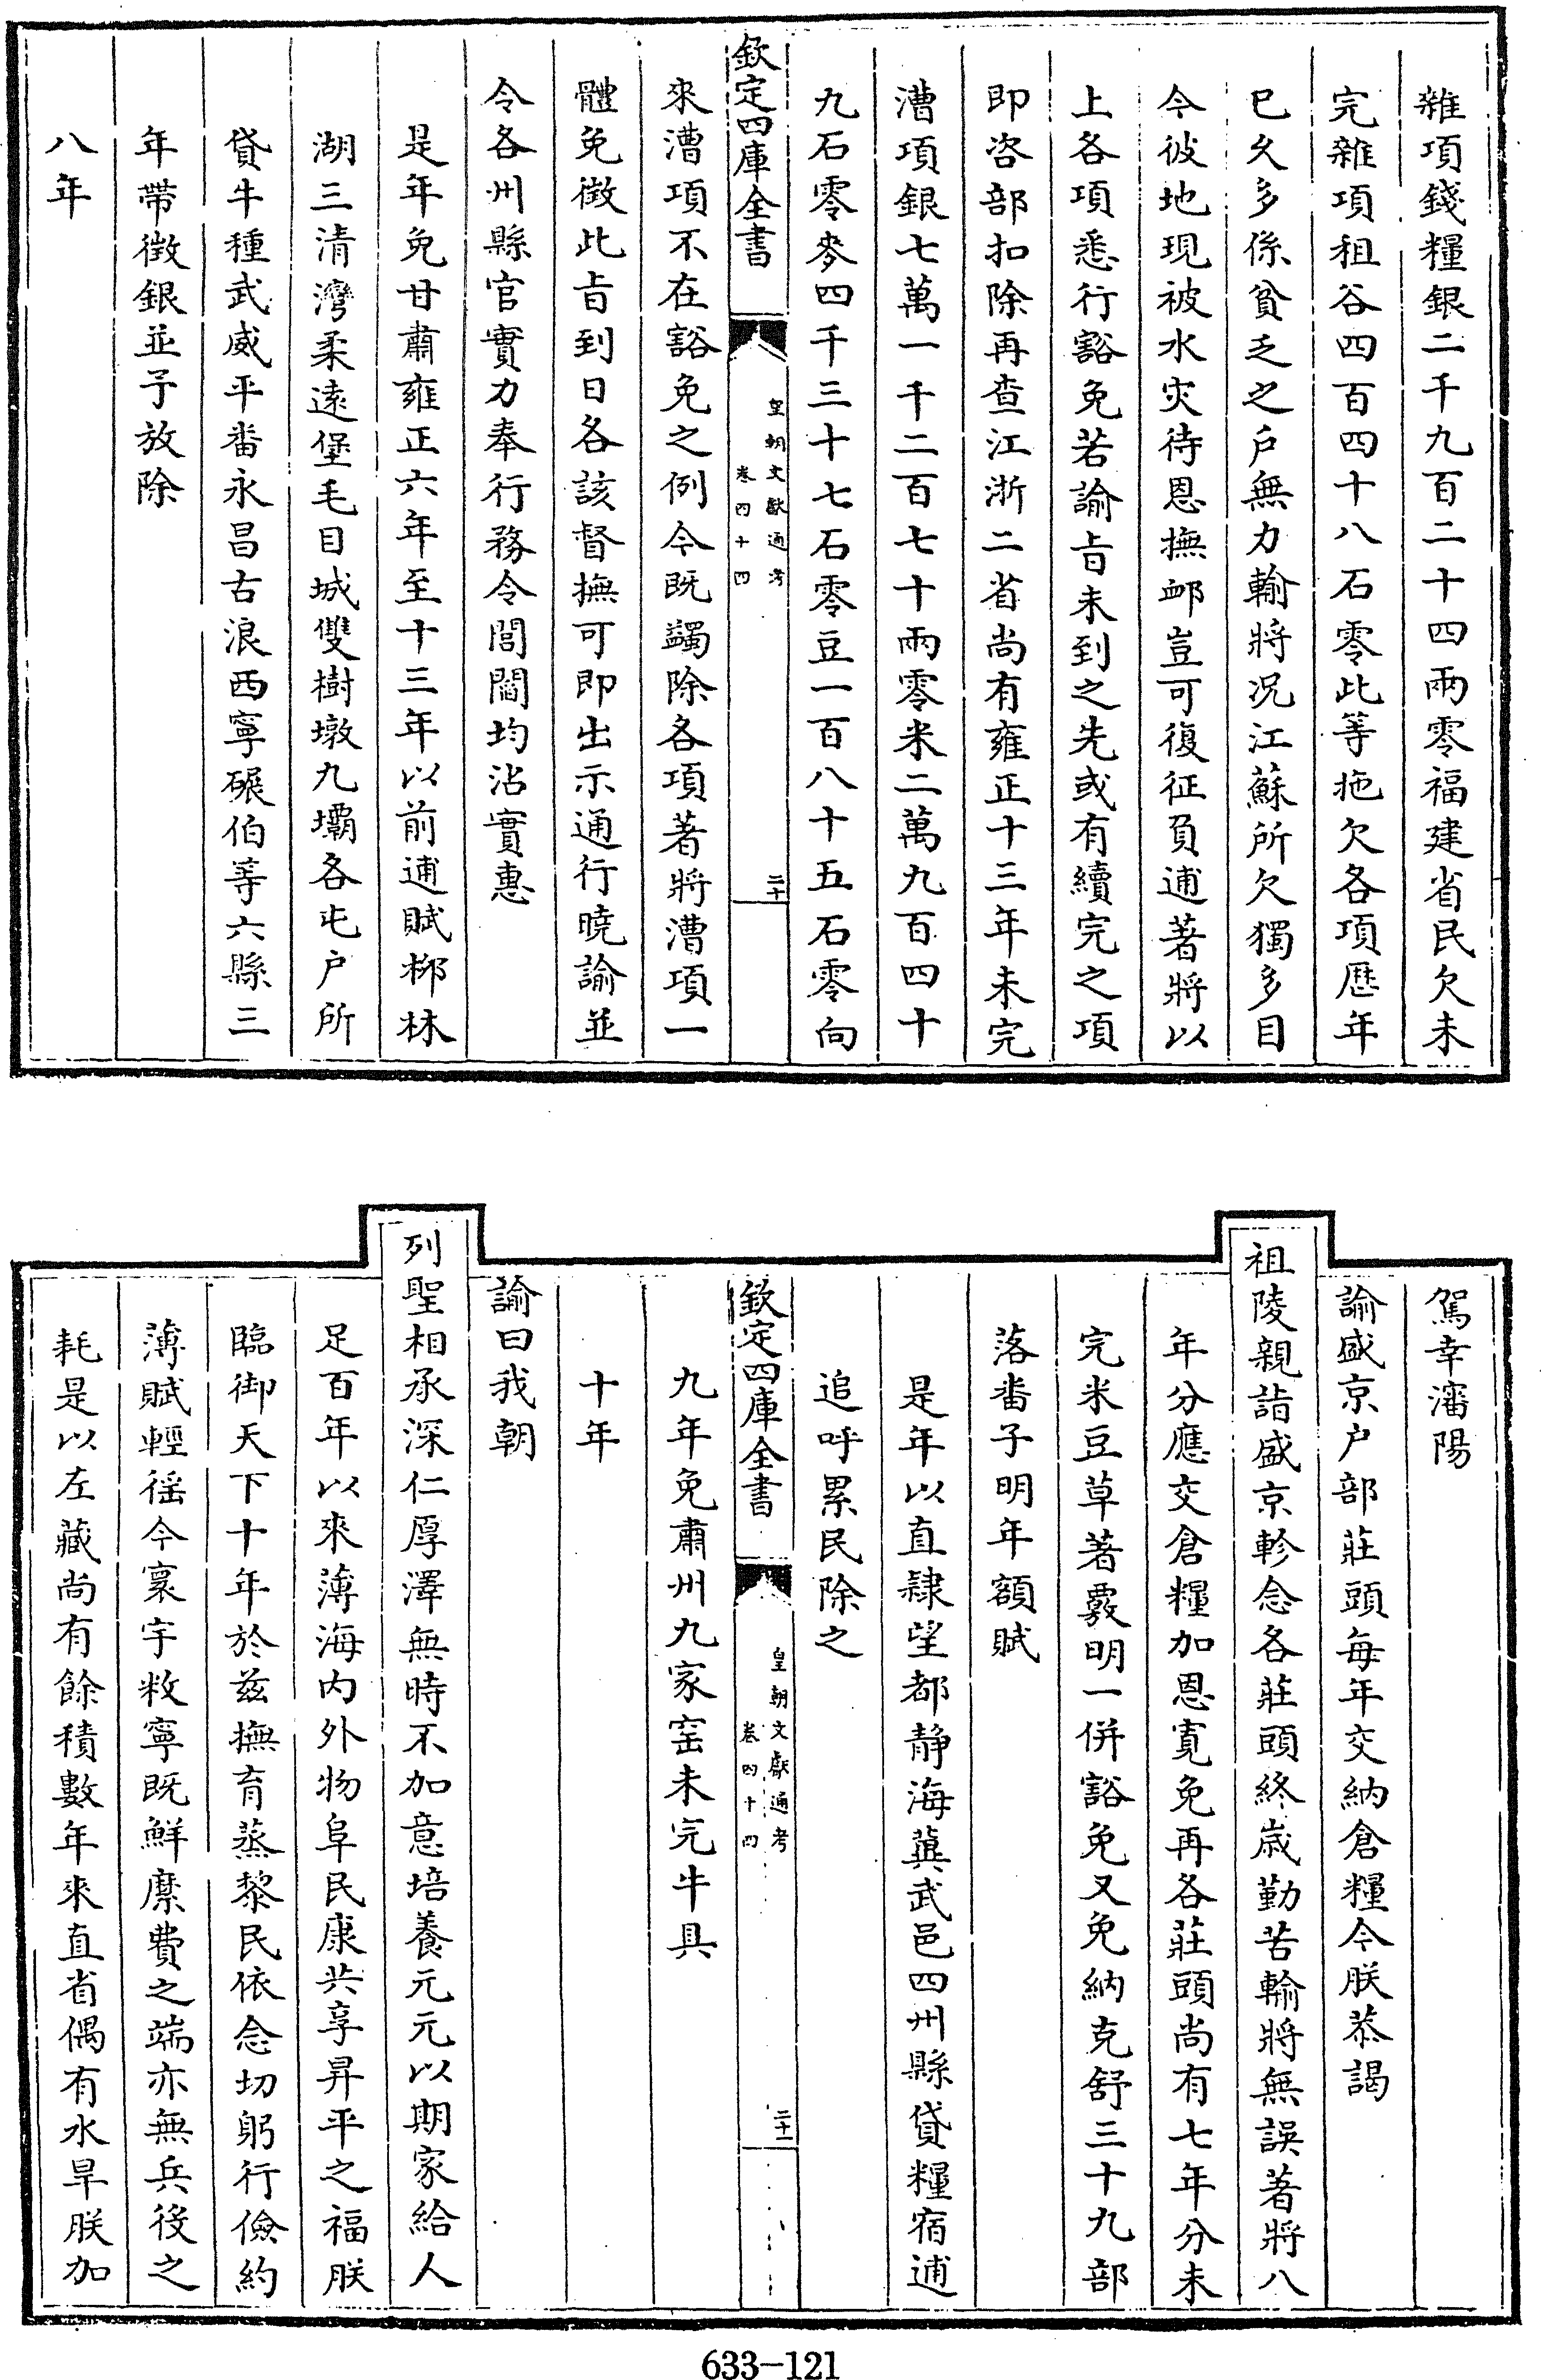 雜項錢糧銀二千九百二十四兩零福建省民欠未
完雜項租谷四百四十八石零此等拖欠各項歷年
已久多係貧乏之戶無力輸將況江蘇所欠獨多目
今彼地現被水灾待恩撫䘏豈可復征負逋著將以
上各項悉行豁免若諭旨未到之先或有續完之項
即咨部扣除再查江浙二省尚有雍正十三年未完
漕項銀七萬一千二百七十兩零米二萬九百四十
九石零麥四千三十七石零豆一百八十五石零向
欽定四庫全書
皇朝文獻通考
卷四十四
二十
來漕項不在豁免之例今既蠲除各項著將漕項一
體免徵此旨到日各該督撫可即出示通行曉諭並
令各州縣官實力奉行務令閭閻均沾實惠
是年免甘肅雍正六年至十三年以前逋賦栁林
湖三清灣柔遠堡毛目城雙樹墩九壩各屯戶所
貸牛種武威平番永昌古浪西寧碾伯等六縣三
年帶徵銀並予放除
八年
駕幸瀋陽
諭盛京戶部莊頭每年交納倉糧今朕恭謁
祖陵親詣盛京軫念各莊頭終歲勤苦輸將無誤著將八
年分應交倉糧加恩寬免再各莊頭尚有七年分未
完米豆草著覈明一併豁免又免納克舒三十九部
落番子明年額賦
是年以直隸望都靜海冀武邑四州縣貸糧宿逋
追呼累民除之
欽定四庫全書
皇朝文獻通考
卷四十四
二十一
九年免肅州九家窑未完牛具
十年
諭曰我朝
列聖相承深仁厚澤無時不加意培養元元以期家給人
足百年以來薄海內外物阜民康共享昇平之福朕
臨御天下十年於茲撫育蒸黎民依念切躬行儉約
薄賦輕徭今寰宇敉寧既鮮縻費之端亦無兵役之
耗是以左藏尚有餘積數年來直省偶有水旱朕加
633-121